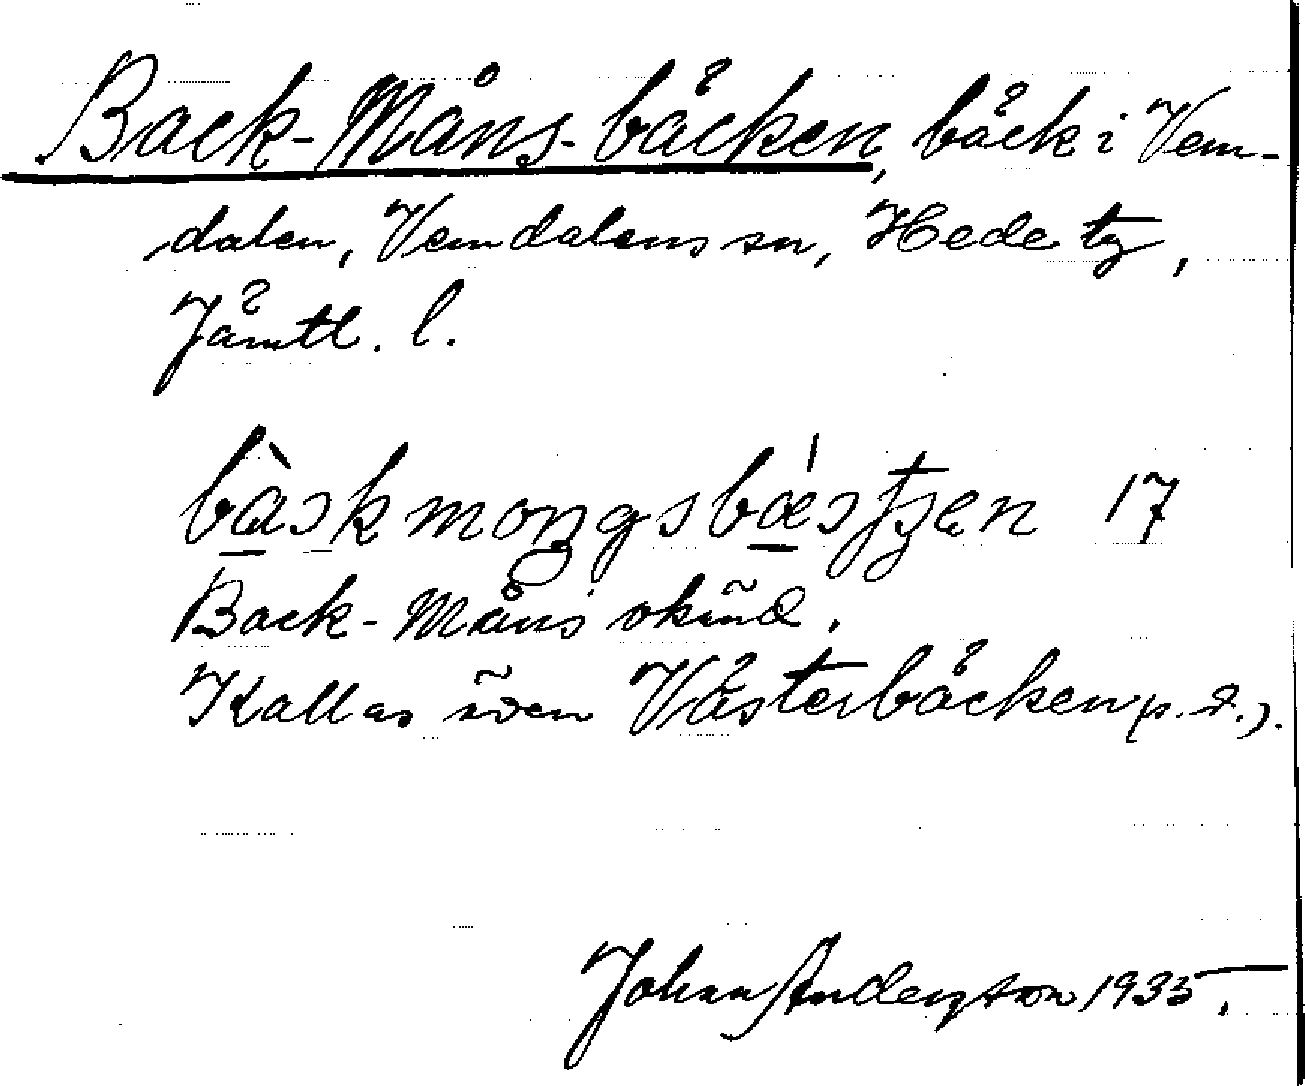 Back-Måns-bäcken, bäck i Vem-
dalen, Vemdalens sn, Hede tg,
Jämtl. l.
17
Back-Måns okänd.
Kallas även Västerbäcken
Johan Anderzon 1935.